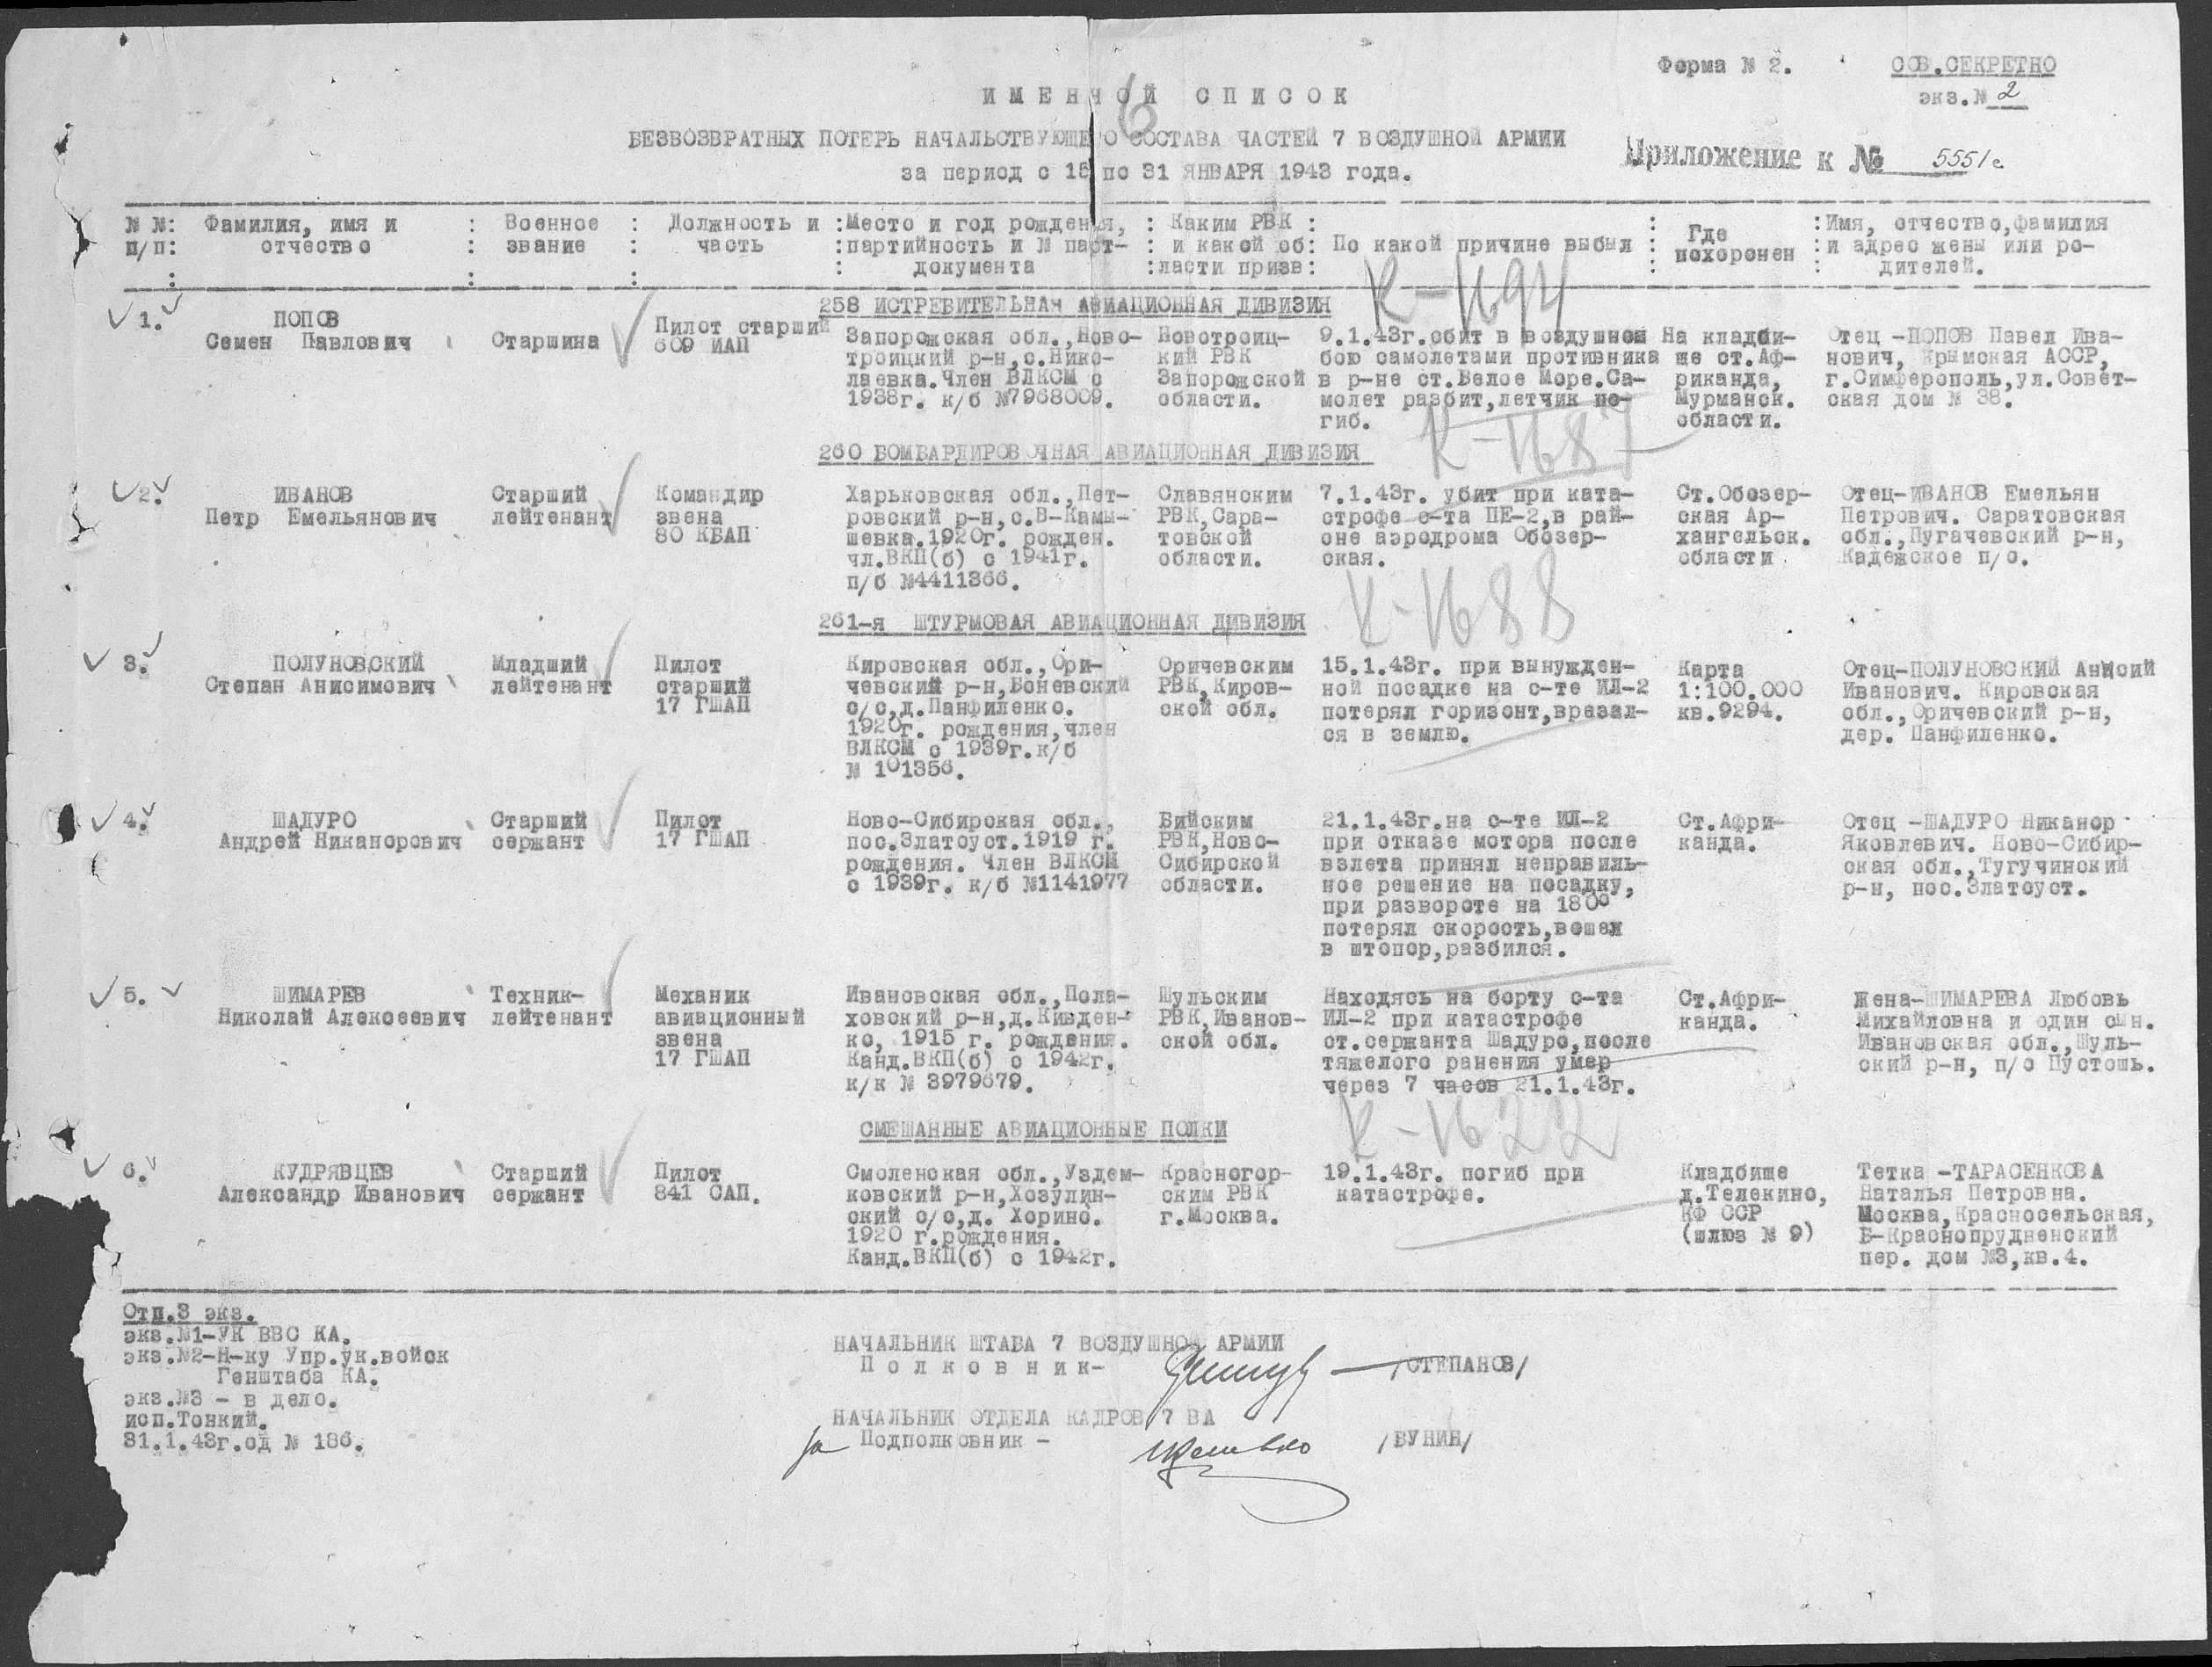 Форма № 2.
СОВ.СЕКРЕТНО
экз.№ 2
ИМЕННОЙ СПИСОК
6
БЕЗВОЗВРАТНЫХ ПОТЕРЬ НАЧАЛЬСТВУЮЩЕГО СОСТАВА ЧАСТЕЙ 7 ВОЗДУШНОЙ АРМИИ
за период с 15 по 31 ЯНВАРЯ 1943 года.
Приложение к № 5551с
№ №: Фамилия, имя и : Военное : Должность и :Место и год рождения, : Каким РВК : : :Имя, отчество,фамилия
п/п: отчество : звание : часть :партийность и № парт- : и какой об: По какой причине выбыл : Где похоронен :и адрес жены или ро-
: : : : документа :ласти призв: : : дителей.
258 ИСТРЕБИТЕЛЬНАЯ АВИАЦИОННАЯ ДИВИЗИЯ
К-1694
1.
ПОПОВ
Семен Павлович
Старшина
Пилот старший
609 ИАП
Запорожская обл.,Ново-
троицкий р-н,с.Нико-
лаевка.Член ВЛКСМ с
1938г. к/б №7968009.
Новотроиц-
кий РВК
Запорожской
области.
9.1.43г.сбит в воздушном
бою самолетами противника
в р-не ст.Белое Море.Са-
молет разбит,летчик по-
гиб.
На кладби-
ще ст.Аф-
риканда,
Мурманск.
области.
Отец -ПОПОВ Павел Ива-
нович, Крымская АССР,
г.Симферополь,ул.Совет-
ская дом № 38.
260 БОМБАРДИРОВОЧНАЯ АВИАЦИОННАЯ ДИВИЗИЯ
К-1687
2.
ИВАНОВ
Петр Емельянович
Старший
лейтенант
Командир
звена
80 КБАП
Харьковская обл.,Пет-
ровский р-н,с.В-Камы-
шевка.1920г. рожден.
чл.ВКП(б) с 1941г.
п/б №4411366.
Славянским
РВК,Сара-
товской
области.
7.1.43г. убит при ката-
строфе с-та ПЕ-2,в рай-
оне аэродрома Обозер-
ская.
Ст.Обозер-
ская Ар-
хангельск.
области
Отец-ИВАНОВ Емельян
Петрович. Саратовская
обл.,Пугачевский р-н,
Кадежское п/о.
261-я ШТУРМОВАЯ АВИАЦИОННАЯ ДИВИЗИЯ
К-1688
3.
ПОЛУНОВСКИЙ
Степан Анисимович
Младший
лейтенант
Пилот
старший
17 ГШАП
Кировская обл.,Ори-
чевский р-н,Боневский
с/с,д.Панфиленко.
1920г. рождения,член
ВЛКСМ с 1939г.к/б
№ 101356.
Оричевским
РВК,Киров-
ской обл.
15.1.43г. при вынужден-
ной посадке на с-те ИЛ-2
потерял горизонт,врезал-
ся в землю.
Карта
1:100.000
кв.9294.
Отец-ПОЛУНОВСКИЙ Анисий
Иванович. Кировская
обл.,Оричевский р-н,
дер. Панфиленко.
4.
ШАДУРО
Андрей Никанорович
Старший
сержант
Пилот
17 ГШАП
Ново-Сибирская обл.,
пос.Златоуст.1919 г.
рождения. Член ВЛКСМ
с 1939г. к/б №1141977
Бийским
РВК,Ново-
Сибирской
области.
21.1.43г.на с-те ИЛ-2
при отказе мотора после
взлета принял неправиль-
ное решение на посадку,
при развороте на 180°
потерял скорость,вошел
в штопор,разбился.
Ст.Афри-
канда.
Отец -ШАДУРО Никанор
Яковлевич. Ново-Сибир-
ская обл.,Тугучинский
р-н, пос.Златоуст.
5.
ШИМАРЕВ
Николай Алексеевич
Техник-
лейтенант
Механик
авиационный
звена
17 ГШАП
Ивановская обл.,Пола-
ховский р-н,д.Кивден-
ко, 1915 г. рождения.
Канд.ВКП(б) с 1942г.
к/к № 3979679.
Шульским
РВК,Иванов-
ской обл.
Находясь на борту с-та
ИЛ-2 при катастрофе
ст.сержанта Шадуро,после
тяжелого ранения умер
через 7 часов 21.1.43г.
Ст.Афри-
канда.
Жена-ШИМАРЕВА Любовь
Михайловна и один сын.
Ивановская обл.,Шуль-
ский р-н, п/о Пустошь.
СМЕШАННЫЕ АВИАЦИОННЫЕ ПОЛКИ
К-1622
6.
КУДРЯВЦЕВ
Александр Иванович
Старший
сержант
Пилот
841 САП.
Смоленская обл.,Уздем-
ковский р-н,Хозулин-
ский с/с,д. Хорино.
1920 г.рождения.
Канд.ВКП(б) с 1942г.
Красногор-
ским РВК
г.Москва.
19.1.43г. погиб при
катастрофе.
Кладбище
д.Телекино,
КФ ССР
(шлюз № 9)
Тетка -ТАРАСЕНКОВА
Наталья Петровна.
Москва,Красносельская,
Б-Краснопрудненский
пер. дом №3,кв.4.
Отп.3 экз.
экз.№1-УК ВВС КА.
экз.№2-Н-ку Упр.ук.войск
Генштаба КА.
экз.№3 - в дело.
исп.Тонкий.
31.1.43г.од № 186.
НАЧАЛЬНИК ШТАБА 7 ВОЗДУШНОЙ АРМИИ
Полковник- /СТЕПАНОВ/
НАЧАЛЬНИК ОТДЕЛА КАДРОВ 7 ВА
за Подполковник - /ВУНИН/